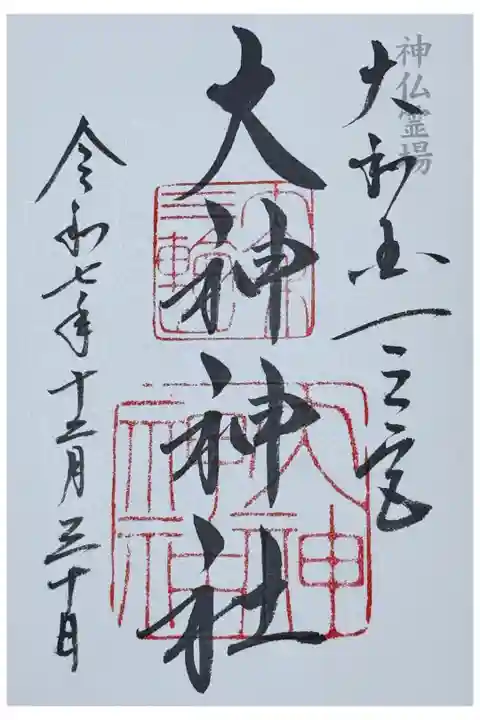 神仏霊場
大和国一之宮
大神神社
三輪
大神神社
令和七年十二月三十日